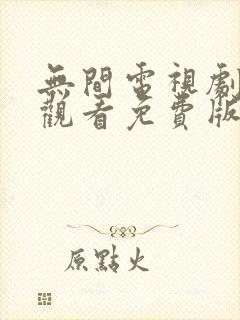 無間電視劇
觀看免費版
原點火